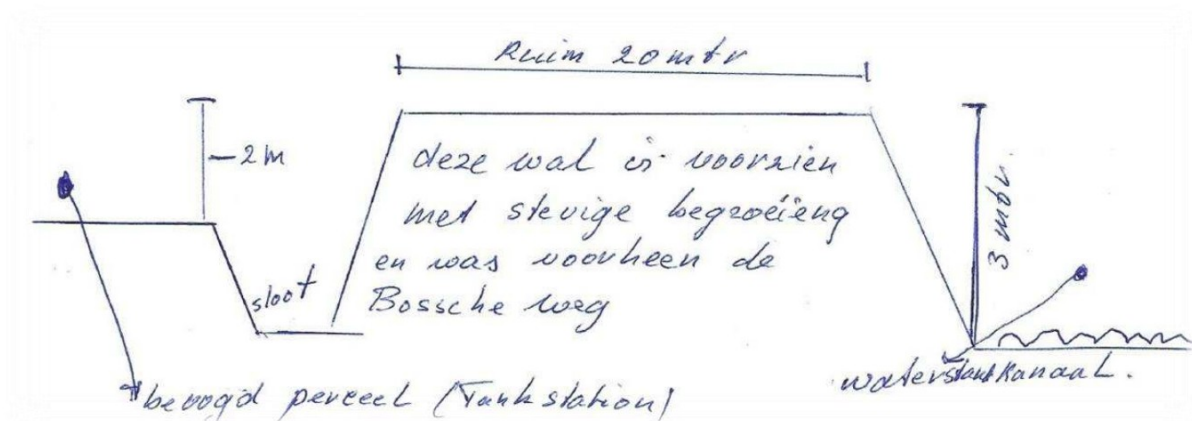 Ruim 20 mtr
- 2 m
deze wal is voorzien
met stevige begroeiëng
en was voorheen de
Bossche weg
sloot
3 mtr.
beoogd perceel (Tankstation)
waterstand Kanaal.